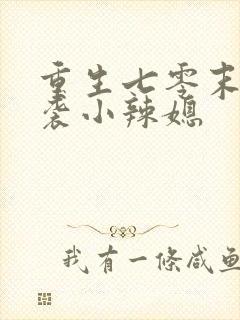 重生七零末
袭小辣媳
我有一條咸鱼